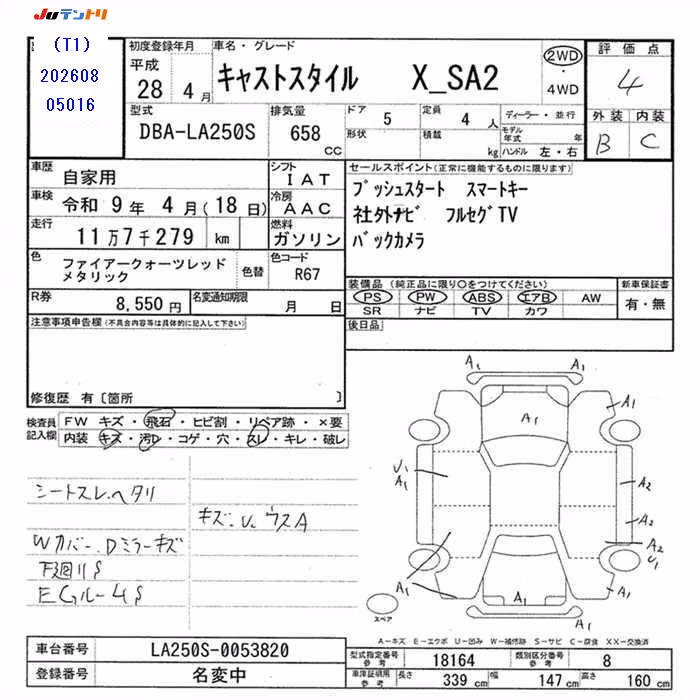 JUテントリ
(T1)
202608
05016
初度登録年月
平成
28 4 月
車名・グレード
キャストスタイル X_SA2
2WD
・
4WD
評価点
4
外装 内装
B C
型式
DBA-LA250S
排気量
658
CC
ドア
5
形状
定員
4 人
積載
kg
ディーラー・並行
モデル年式 年
ハンドル 左・右
車歴
自家用
シフト
IAT
車検
令和 9年 4月(18日)
冷房
AAC
走行
11万7千279 km
燃料
ガソリン
色
ファイアークォーツレッド
メタリック
色替
色コード
R67
R券
8,550円
名変通知期限
月 日
セールスポイント(正常に機能するものに限ります)
プッシュスタート スマートキー
社外ナビ フルセグTV
バックカメラ
装備品 (純正品に限り○をつけてください)
PS PW ABS エアB AW
SR ナビ TV カワ
新車保証書
有・無
後日品
注意事項申告欄(不具合内容等は具体的に記入して下さい)
修復歴 有〔箇所 〕
検査員
記入欄
FW キズ・飛石・ヒビ割・リペア跡・×要
内装・キズ・汚レ・コゲ・穴・スレ・キレ・破レ
シートスレ、ヘタリ
キズ、U、ウスA
Wカバー、Dミラーキズ
下廻りS
Eグルーム S
A1
A1
A1
A1
A1
U1
A1
A2
A2
A2
U1
A1
A1
A1
スペア
A-キズ E-エクボ U-凹み W-補修跡 S-サビ C-腐食 XX-交換済
車台番号
LA250S-0053820
登録番号
名変中
型式指定番号
参考
18164
類別区分番号
参考
8
車検証明用
参考
長さ
339 cm
幅
147 cm
高さ
160 cm